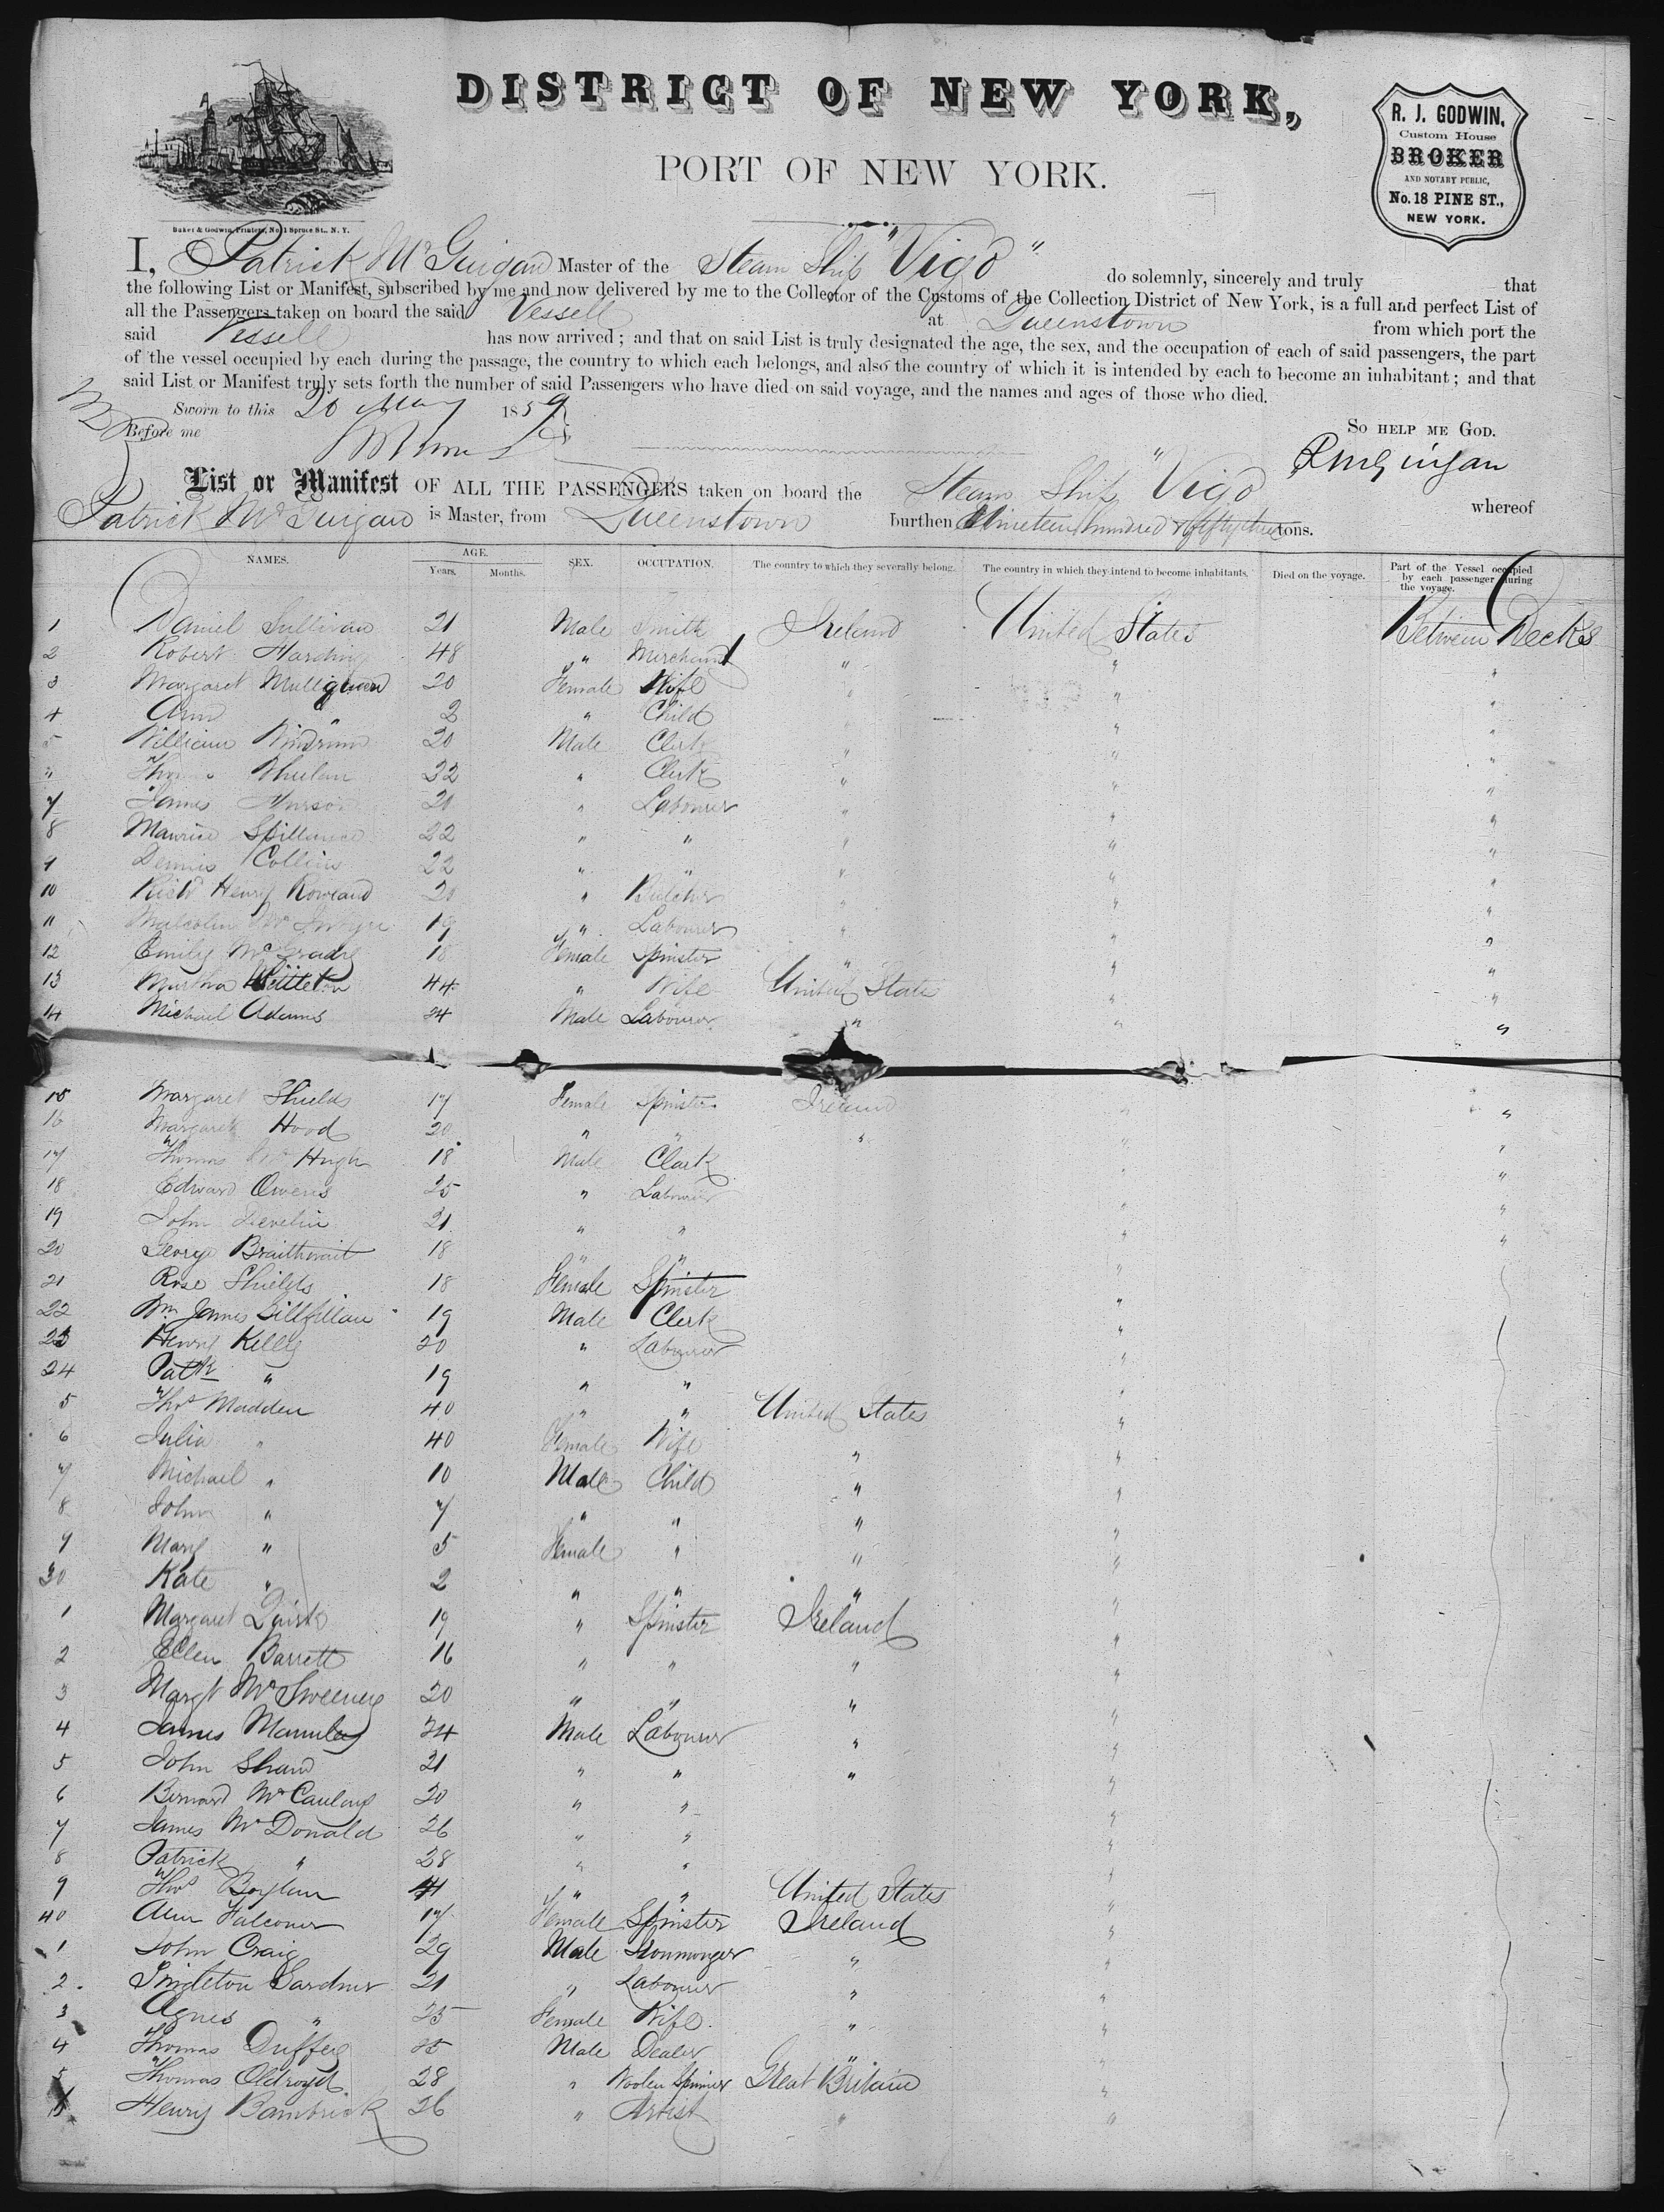 DISTRICT OF NEW YORK,
PORT OF NEW YORK.
R. J. GODWIN,
Custom House
BROKER
AND NOTARY PUBLIC,
No. 18 PINE ST.,
NEW YORK.
Baker & Godwin, Printers, No. 1 Spruce St., N. Y.
I, Patrick McGuigan Master of the Steam Ship "Vigo" do solemnly, sincerely and truly that
the following List or Manifest, subscribed by me and now delivered by me to the Collector of the Customs of the Collection District of New York, is a full and perfect List of
all the Passengers taken on board the said Vessell at Queenstown from which port the
said Vessell has now arrived; and that on said List is truly designated the age, the sex, and the occupation of each of said passengers, the part
of the vessel occupied by each during the passage, the country to which each belongs, and also the country of which it is intended by each to become an inhabitant; and that
said List or Manifest truly sets forth the number of said Passengers who have died on said voyage, and the names and ages of those who died.
Sworn to this 20 May 1859
Before me
SO HELP ME GOD.
PMcGuigan
List or Manifest OF ALL THE PASSENGERS taken on board the Steam Ship "Vigo whereof
Patrick McGuigan is Master, from Queenstown burthen Nineteen hundred & fifty three tons.
NAMES. AGE. Years. Months. SEX. OCCUPATION. The country to which they severally belong. The country in which they intend to become inhabitants. Died on the voyage. Part of the Vessel occupied by each passenger during the voyage.
1 Daniel Sullivan 21 Male Smith Ireland United States Between Decks
2 Robert Harding 48 " Merchant " " "
3 Margaret Mulligan 20 Female Wife " " "
4 Ann " 2 " Child " "
5 William 20 Male Clerk " " "
" Thomas Whelan 32 " Clerk " " "
7 James 21 " Labourer " " "
8 Maurice Spillance 22 " " " " "
9 Dennis Collins 22 " " " " "
10 Richd Henry Rowland 20 " Butcher " " "
11 Malcolm 19 " Labourer " "
12 Emily McGrady 18 Female Spinster " " "
13 Martha 44 " Wife United States " "
14 Michael Adams 24 Male Labourer " " "
15 Margaret Shields 17 Female Spinster Ireland " "
16 Margaret Hood 20 " " " " "
17 Thomas McHugh 18 Male Clark " "
18 Edward Owens 25 " Labourer " "
19 John Develin 21 " " " "
20 George Braithwait 18 " " "
21 Rose Shields 18 Female Spinster "
22 Wm James Gillfillan 19 Male Clerk "
23 Henry Kelly 20 " Labourer "
24 Patk " 19 " " "
5 Thos Madden 40 " " United States "
6 Julia " 40 Female Wife " "
7 Michael " 10 Male Child " "
8 John " 7 " " " "
9 Mary " 5 Female " " "
30 Kate " 2 " " " "
1 Margaret Quirk 19 " Spinster Ireland "
2 Ellen Barrett 16 " " " "
3 Margt McSweeney 20 " " " "
4 James 24 Male Labourer " "
5 John Shaw 21 " " " "
6 Bernard McCauley 20 " " "
7 James McDonald 26 " " "
8 Patrick " 28 " " "
9 Thos Boylan 41 " " United States "
40 Ann Falconer 17 Female Spinster Ireland "
1 John Craig 29 Male Ironmonger " "
2 Singleton Gardner 21 " Labourer " "
3 Agnes " 25 Female Wife " "
4 Thomas Duffey Male Dealer " "
5 Thomas Oldroyd 28 " Woolen Spinner Great Britain "
6 Henry Bambrick 26 " Artist " "